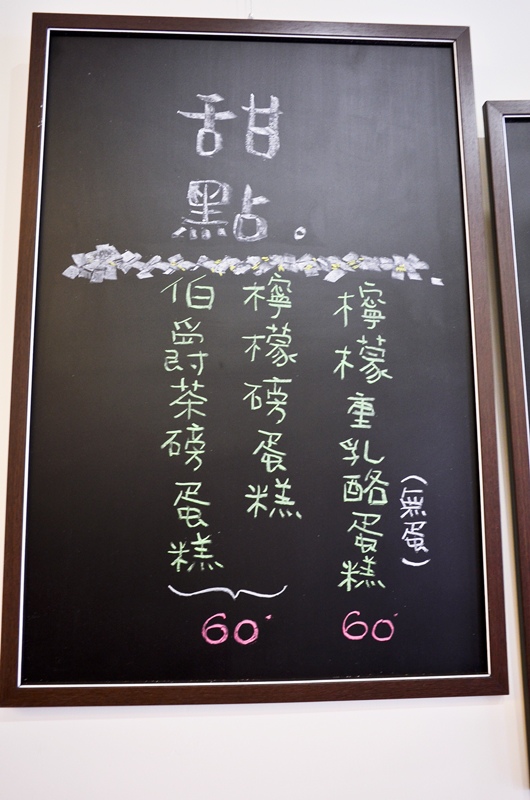 甜點.
檸檬重乳酪蛋糕
(無蛋)
60
檸檬磅蛋糕
伯爵茶磅蛋糕
60